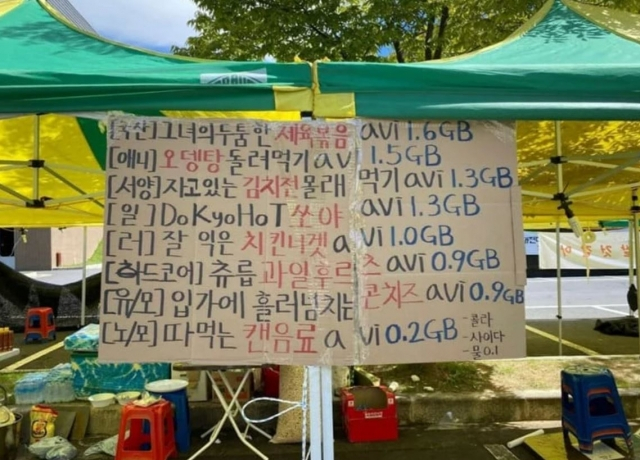 [국산]그녀의두툼한 제육볶음 avi 1.6GB
[애니]오뎅탕 돌려먹기 avi 1.5GB
[서양]자고있는 김치전 몰래 먹기 avi 1.3GB
[일]DoKyoHoT 쏘야 avi 1.3GB
[러]잘 익은 치킨너겟 avi 1.0GB
[하드코어]츄릅 과일후르츠 avi 0.9GB
[유/모]입가에 흘러넘치는 콘치즈 avi 0.9GB
[노/모]따먹는 캔음료 avi 0.2GB
-콜라
-사이다
-물0.1